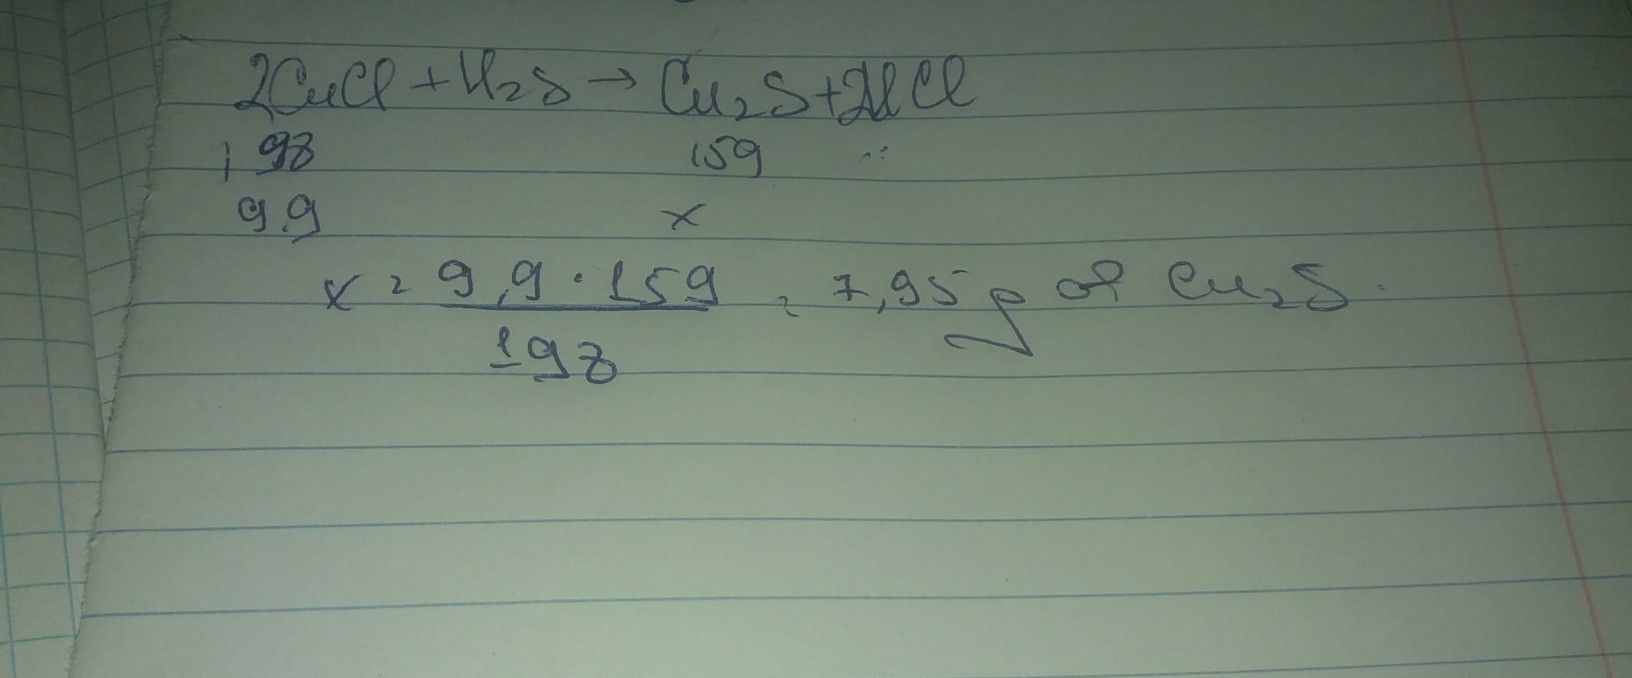 2CuCl + H₂S → Cu₂S + 2HCl
198 159
9,9 x
x = 9,9 · 159 / 198 = 7,95 g of Cu₂S.